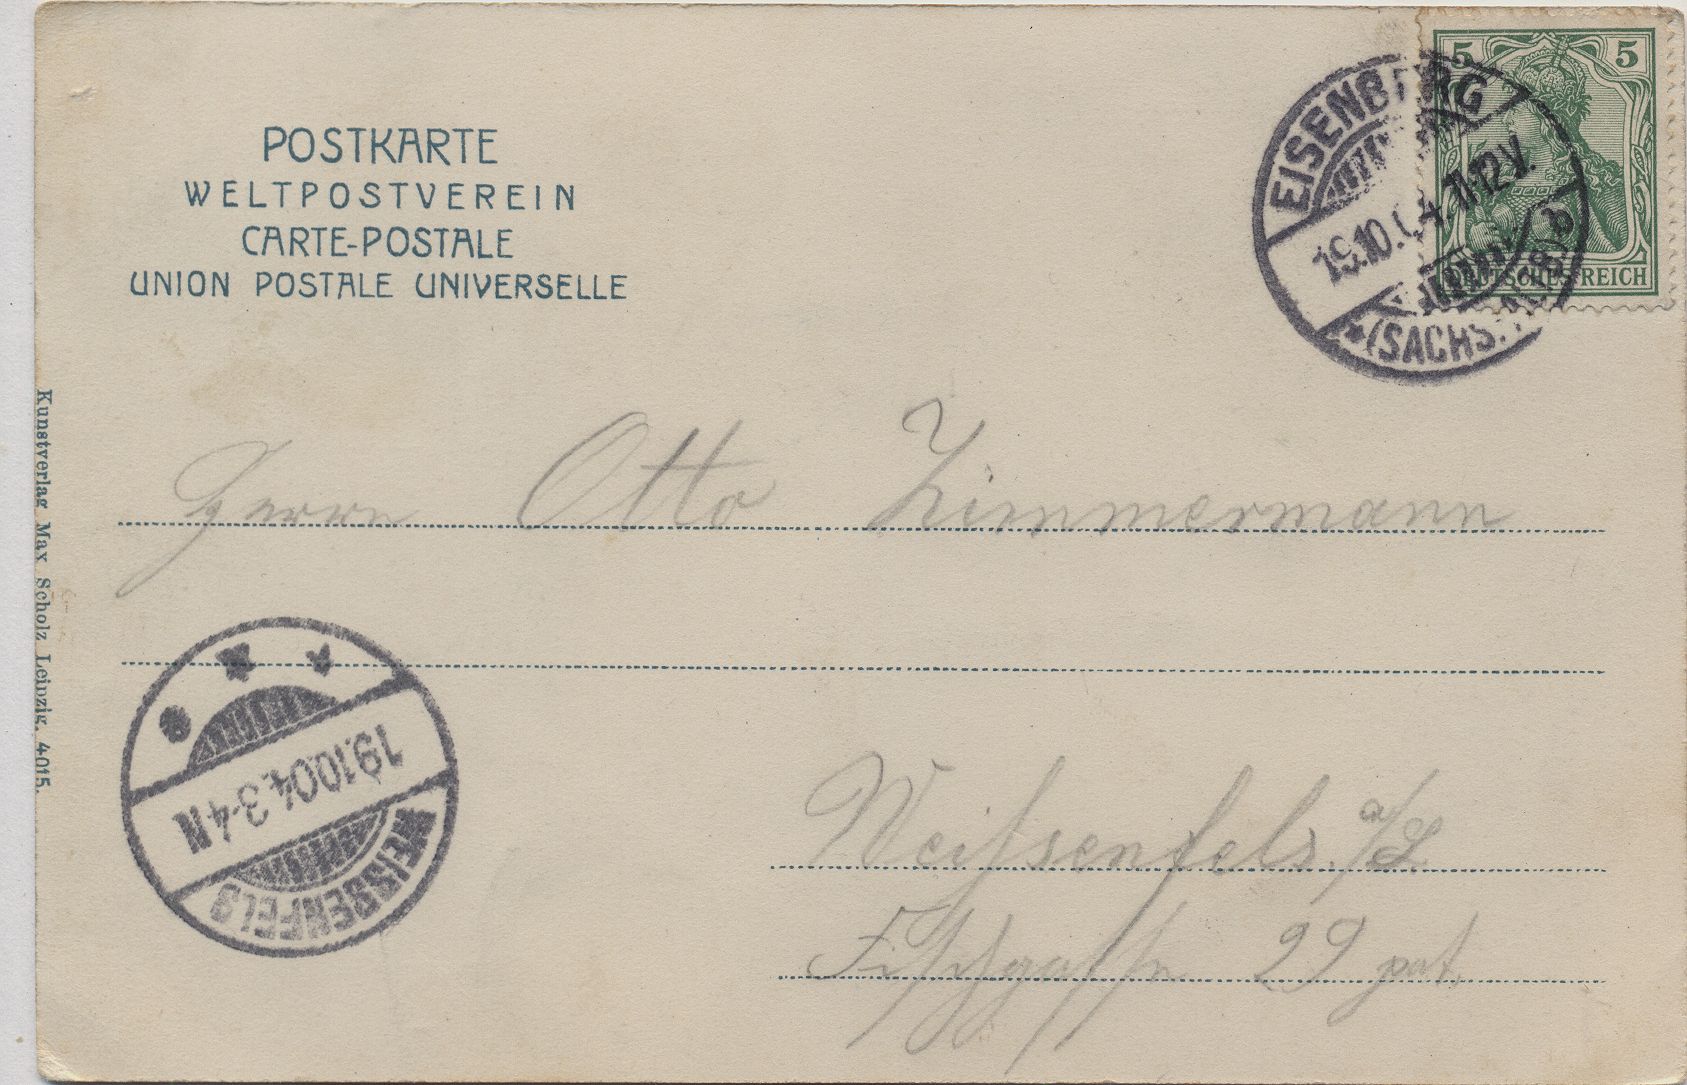 POSTKARTE
WELTPOSTVEREIN
CARTE-POSTALE
UNION POSTALE UNIVERSELLE
5 5
DEUTSCHES REICH
EISENBERG
19.10.04. 11-12 V.
*(SACHS.
a
Kunstverlag Max Scholz Leipzig. 4015.
Herrn Otto Zimmermann
Weißenfels. a/S
29 pat.
19.10.04. 3-4 N
WEISSENFELS